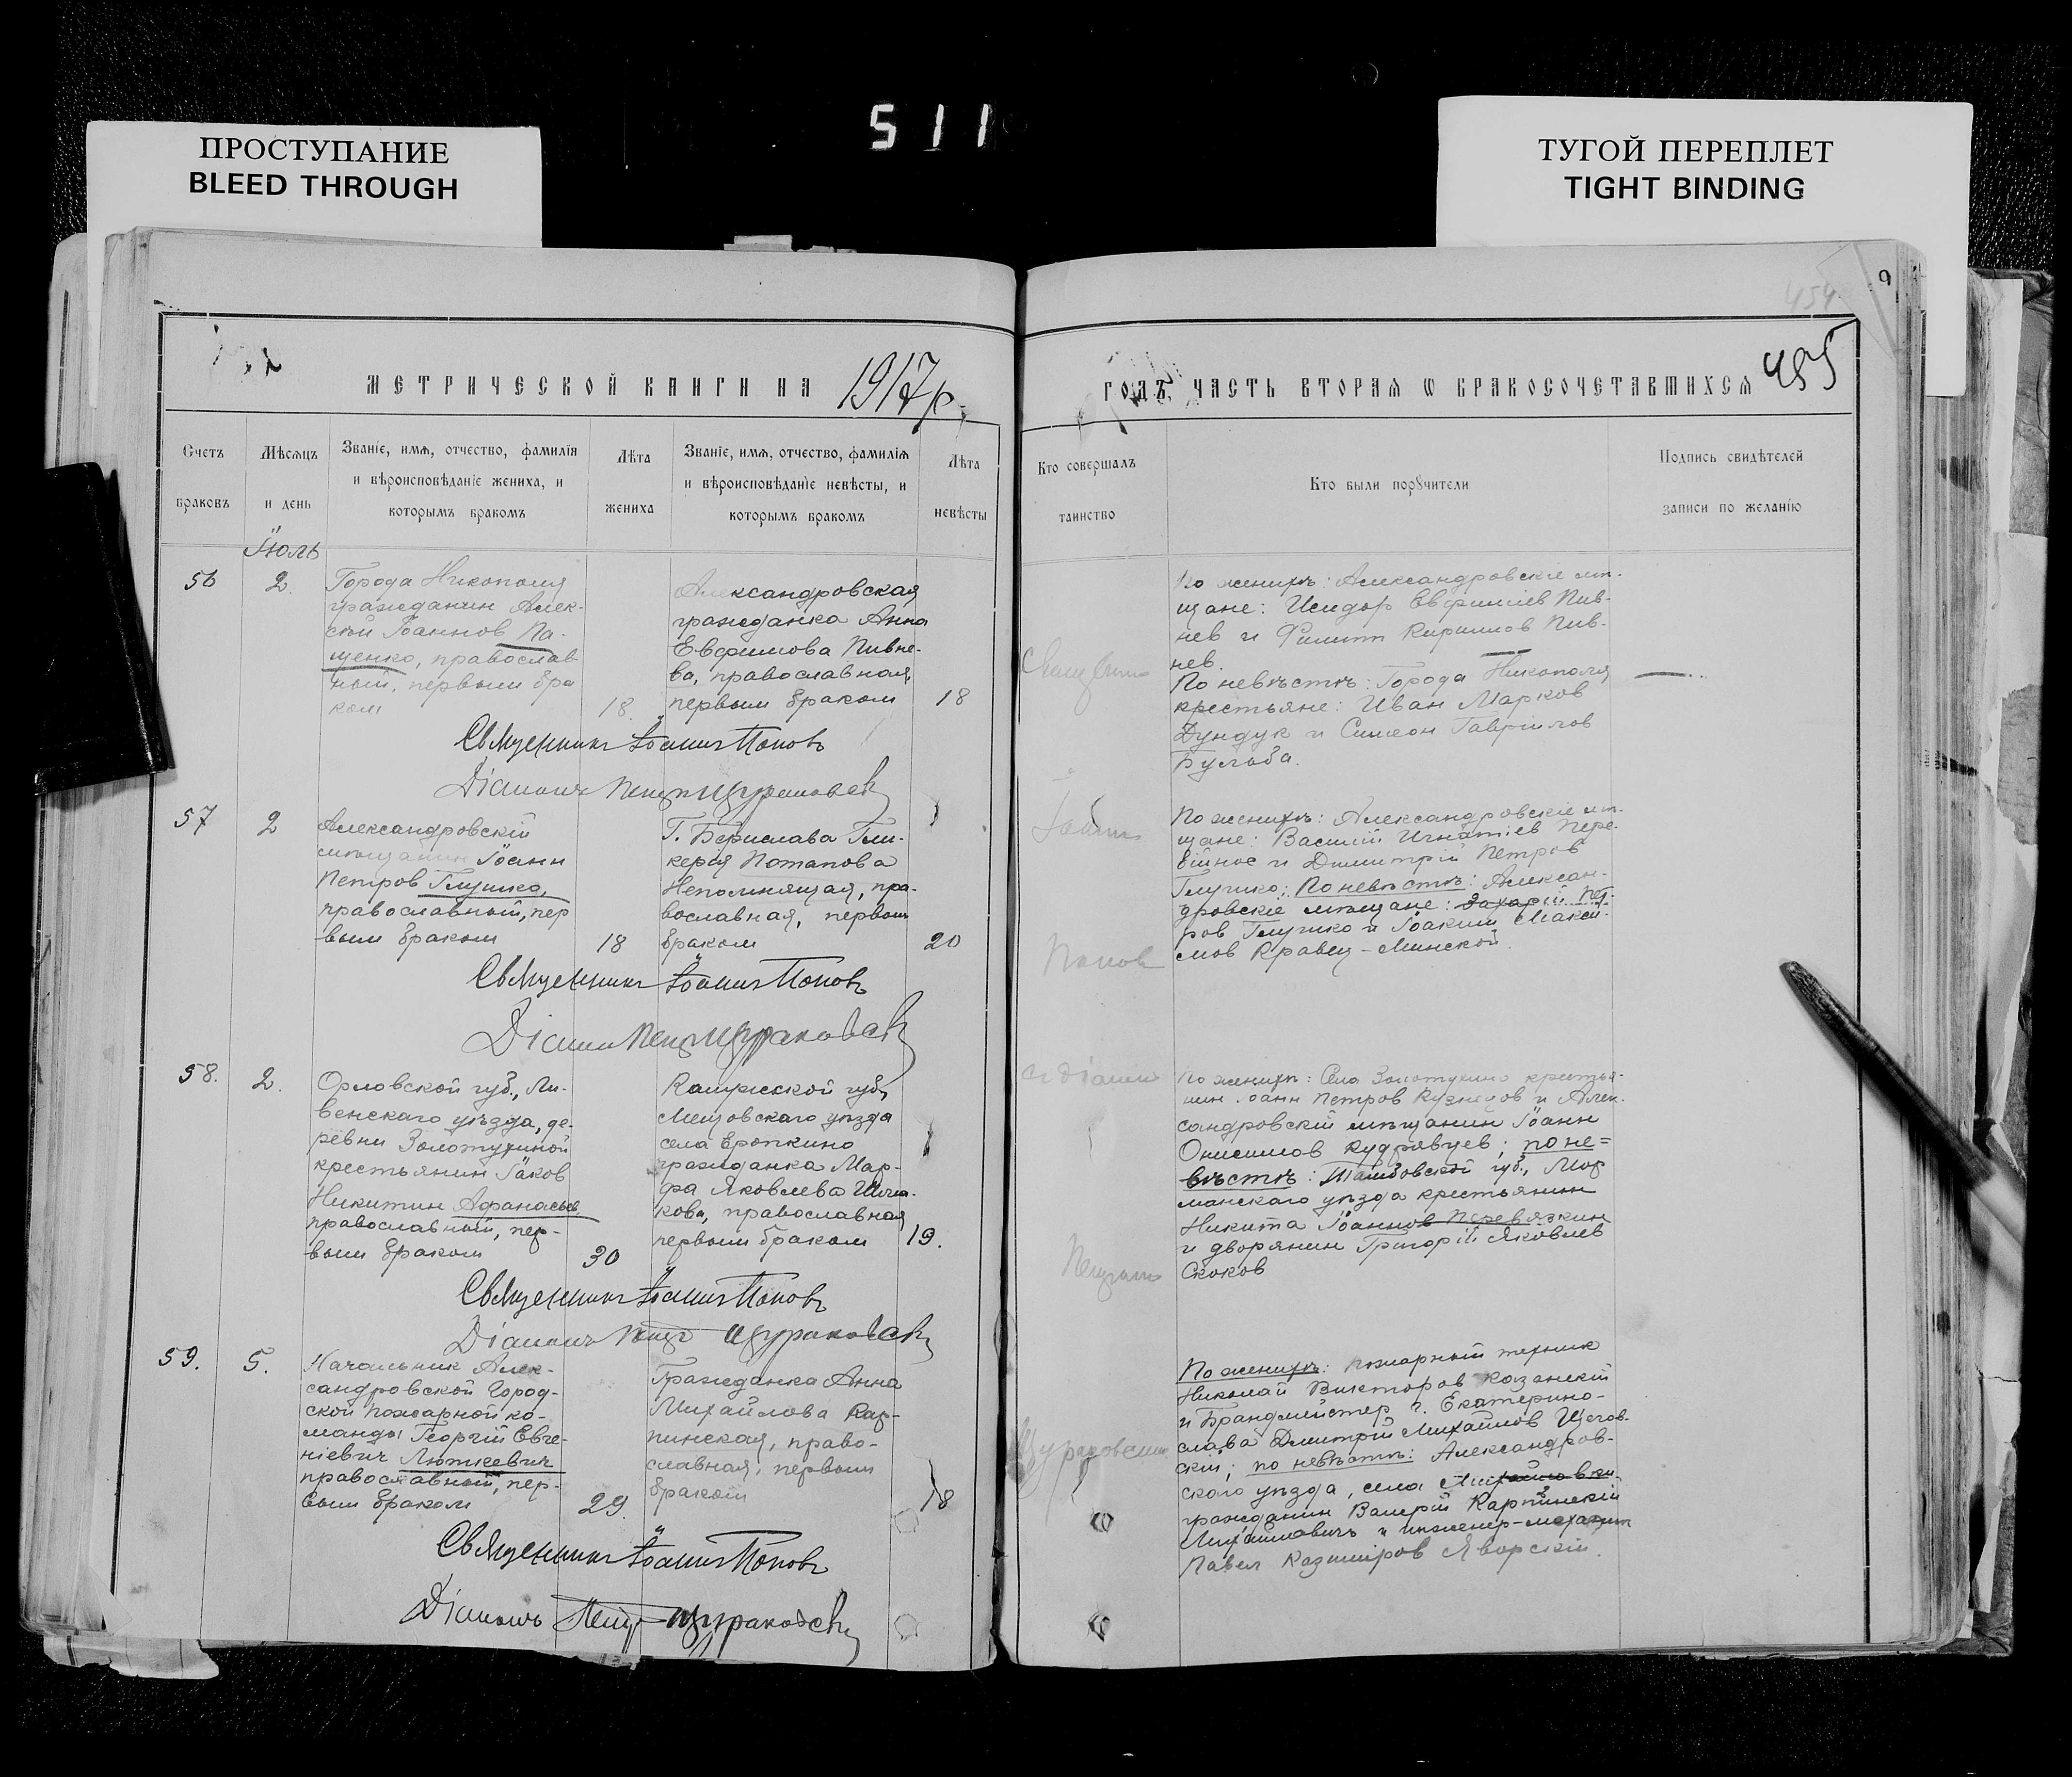 511
ПРОСТУПАНИЕ
BLEED THROUGH
ТУГОЙ ПЕРЕПЛЕТ
TIGHT BINDING
9
454
495
МЕТРИЧЕСКОЙ КНИГИ НА 1917 г.
ГОДЪ, ЧАСТЬ ВТОРАЯ Ѡ БРАКОСОЧЕТАВШИХСЯ
Счетъ
браковъ
Мѣсяцъ
и день
Званіе, имя, отчество, фамилія
и вѣроисповѣданіе жениха, и
которымъ бракомъ
Лѣта
жениха
Званіе, имя, отчество, фамилія
и вѣроисповѣданіе невѣсты, и
которымъ бракомъ
Лѣта
невѣсты
Кто совершалъ
таинство
Кто были порꙋчители
Подпись свидѣтелей
записи по желанію
Іюль
56
2
Города Никополя
гражданин Алек-
сѣй Іоаннов Па-
щенко, православ-
ный, первым бра
ком
18.
Александровская
гражданка Анна
Евфимова Пивне-
ва, православная,
первым браком
18
По женихѣ: Александровскіе мѣ-
щане: Исидор Евфиміев Пив-
нев и Филипп Кириллов Пив-
нев.
По невѣстѣ: Города Никополя
крестьяне: Иван Марков
Дундук и Симеон Гавріилов
Бульба.
Священникъ Іоаннъ Поповъ
Діаконъ Петръ Щураковск
57
2
Александровскій
мѣщанин Іоанн
Петров Глушко,
православный, пер
вым браком
18
Г. Берислава Гли-
керія Потапова
Непомнящая, пра-
вославная, первым
браком
20
Іоаннъ
Попов
По женихѣ: Александровскіе мѣ-
щане: Василій Игнатіев Пере-
війнос и Димитрій Петров
Глушко; По невѣстѣ: Алексан-
дровскіе мѣщане: Захарій Пет-
ров Глушко и Іоаким Макси-
мов Кравец-Минской.
Священникъ Іоаннъ Поповъ
Діаконъ Петръ Щураковск
58.
2.
Орловской губ., Ли-
венскаго уѣзда, де-
ревни Золотухиной
крестьянин Іаков
Никитин Афанасьев
православный, пер-
вым браком
30
Калужской губ,
Мещовскаго уѣзда
села Еропкино
гражданка Мар-
фа Яковлева
кова, православная
первым браком
19.
и діакон
По женихѣ: Села Золотухино крестья-
нин Іоанн Петров Кузнецов и Алек-
сандровскій мѣщанин Іоанн
Онисимов Кудрявцев; по не=
вѣстѣ: Тамбовской губ., Мор
шанскаго уѣзда крестьянин
Никита Іоаннов Перевязкин
и дворянин Григорій Яковлев
Скоков
Священникъ Іоаннъ Поповъ
Діаконъ Петръ Щураковск
59.
5.
Начальник Алек-
сандровской Город-
ской пожарной ко-
манды Георгій Евге-
ніевич Люткевич
православный, пер-
вым браком
29.
Гражданка Анна
Михайлова Кар-
пинская, право-
славная, первым
браком
18
Щураковскій
По женихѣ: Пожарный техник
Николай Викторов Казанскій
и Брандмейстер г. Екатерино-
слава Дмитрій Михайлов Щегов-
скій; по невѣстѣ: Александров-
скаго уѣзда, села Михайловки
гражданин Валерій Карпинскій
Михайлович и инженер-механик
Павел Казиміров Яворскій.
Священникъ Іоаннъ Поповъ
Діаконъ Петръ Щураковск